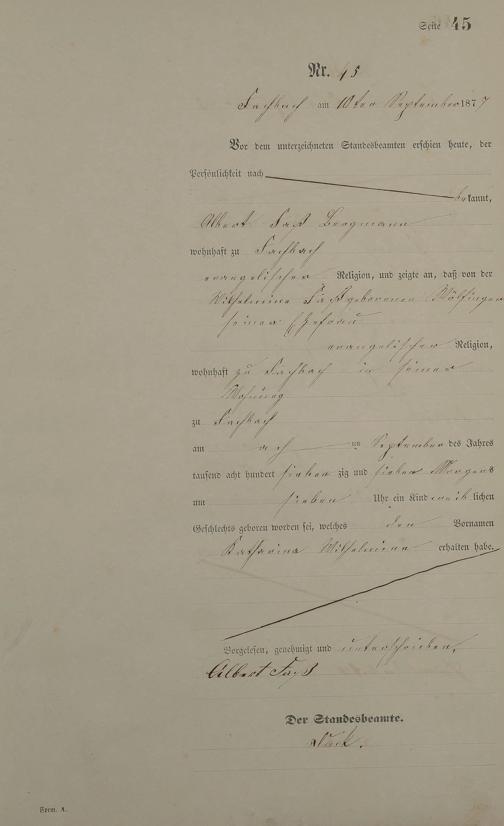 Seite 45
Nr. 45
Fachbach am 10ten September 1877
Vor dem unterzeichneten Standesbeamten erschien heute, der
Persönlichkeit nach
bekannt,
Albert Bergmann
wohnhaft zu Fachbach
evangelischer Religion, und zeigte an, daß von der
Wilhelmine geborenen
seiner Ehefrau
evangelischer Religion,
wohnhaft zu Fachbach in seiner
Wohnung
zu Fachbach
am ach ten September des Jahres
tausend acht hundert sieben zig und sieben Morgens
um sieben Uhr ein Kind weib lichen
Geschlechts geboren worden sei, welches den Vornamen
Katharina Wilhelmine erhalten habe.
Vorgelesen, genehmigt und unterschrieben,
Albert
Der Standesbeamte.
Form. A.